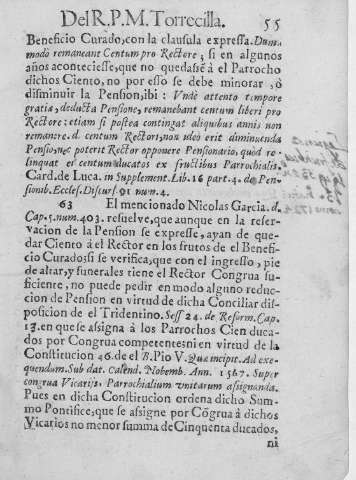 Del R.P.M. Torrecilla. 55
Beneficio Curado, con la clausula expressa. Dum
modò remaneant Centum pro Rectore, si en algunos
años aconteciesse, que no quedasẽ à el Parrocho
dichos Ciento, no por esso se debe minorar, ò
disminuir la Pension, ibi: Vndè attento tempore
gratiæ, deducta Pensione, remanebant centum liberi pro
Rectore: etiam si postea contingat aliquibus annis non
remanere. d. centum Rectori, non ideò erit diminuenda
Pensio, nec poterit Rector opponere Pensionario, quòd re-
linquat ei centum ducatos ex fructibus Parrochialis.
Card. de Luca. in Supplement. Lib. 16 part. 4. de Pen-
sionib. Eccles. Discurs. 91 num. 4.
63 El mencionado Nicolas Garcia. d.
Cap. 5. num. 403. resuelve, que aunque en la reser-
vacion de la Pension se expresse, ayan de que-
dar Ciento à el Rector en los frutos de el Benefi-
cio Curado; si se verifica, que con el ingresso, pie
de altar, y funerales tiene el Rector Congrua su-
ficiente, no puede pedir en modo alguno reduc-
cion de Pension en virtud de dicha Conciliar dis-
posicion de el Tridentino. Sess 24. de Reform. Cap.
13. en que se assigna à los Parrochos Cien duca-
dos por Congrua competentes: ni en virtud de la
Constitucion 46. de el B. Pio V. Quæ incipit. Ad exe-
quendum. Sub dat. Calend. Nobemb. Ann. 1567. Super
congrua Vicarijs Parrochialium vnitarum assignanda.
Pues en dicha Constitucion ordena dicho Sum-
mo Pontifice, que se assigne por Cõgrua à dichos
Vicarios no menor summa de Cinquenta ducados,
ni